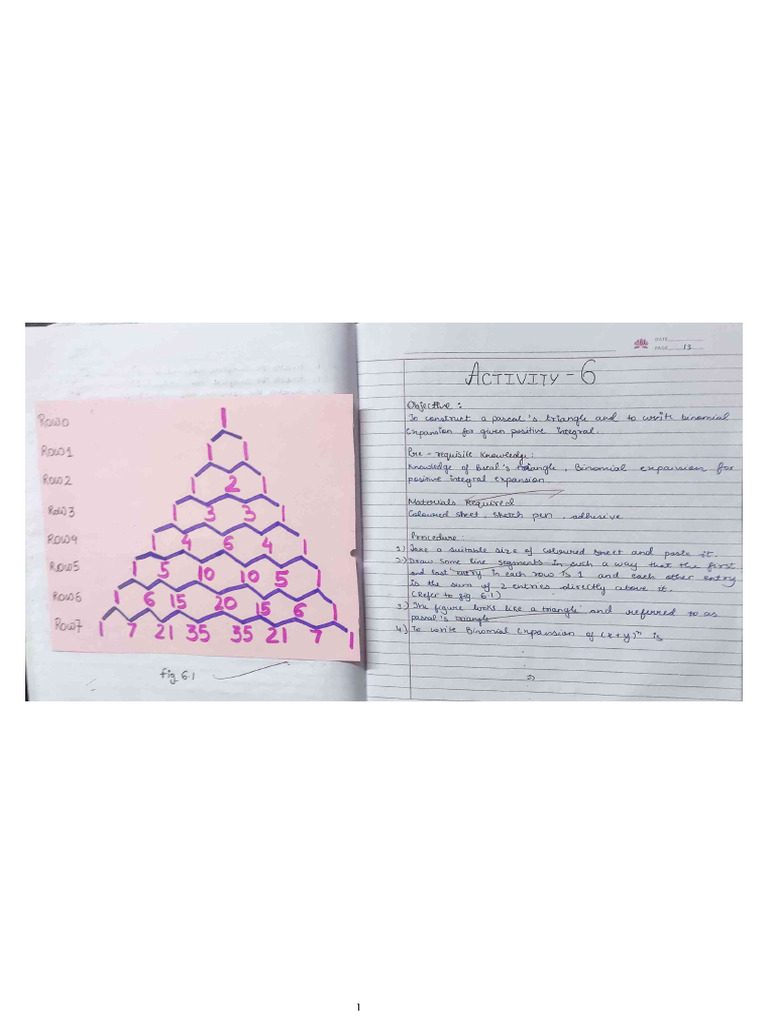 Row 0 1
Row 1 1 1
Row 2 1 2 1
Row 3 1 3 3 1
Row 4 1 4 6 4 1
Row 5 1 5 10 10 5 1
Row 6 1 6 15 20 15 6 1
Row 7 1 7 21 35 35 21 7 1
fig 6.1
DATE
PAGE 13
ACTIVITY - 6
Objective :
To construct a pascal's triangle and to write binomial
expansion for given positive integral.
Pre - requisite Knowledge :
Knowledge of Pascal's triangle, Binomial expansion for
positive integral expansion
Materials Required
Coloured sheet, sketch pen, adhesive
Procedure :
1) Take a suitable size of coloured sheet and paste it.
2) Draw some line segments in such a way that the first
and last entry in each row is 1 and each other entry
is the sum of 2 entries directly above it.
(Refer to fig. 6.1)
3) The figure looks like a triangle and referred to as
pascal's triangle
4) To write Binomial Expansion of (x+y)ⁿ is
1